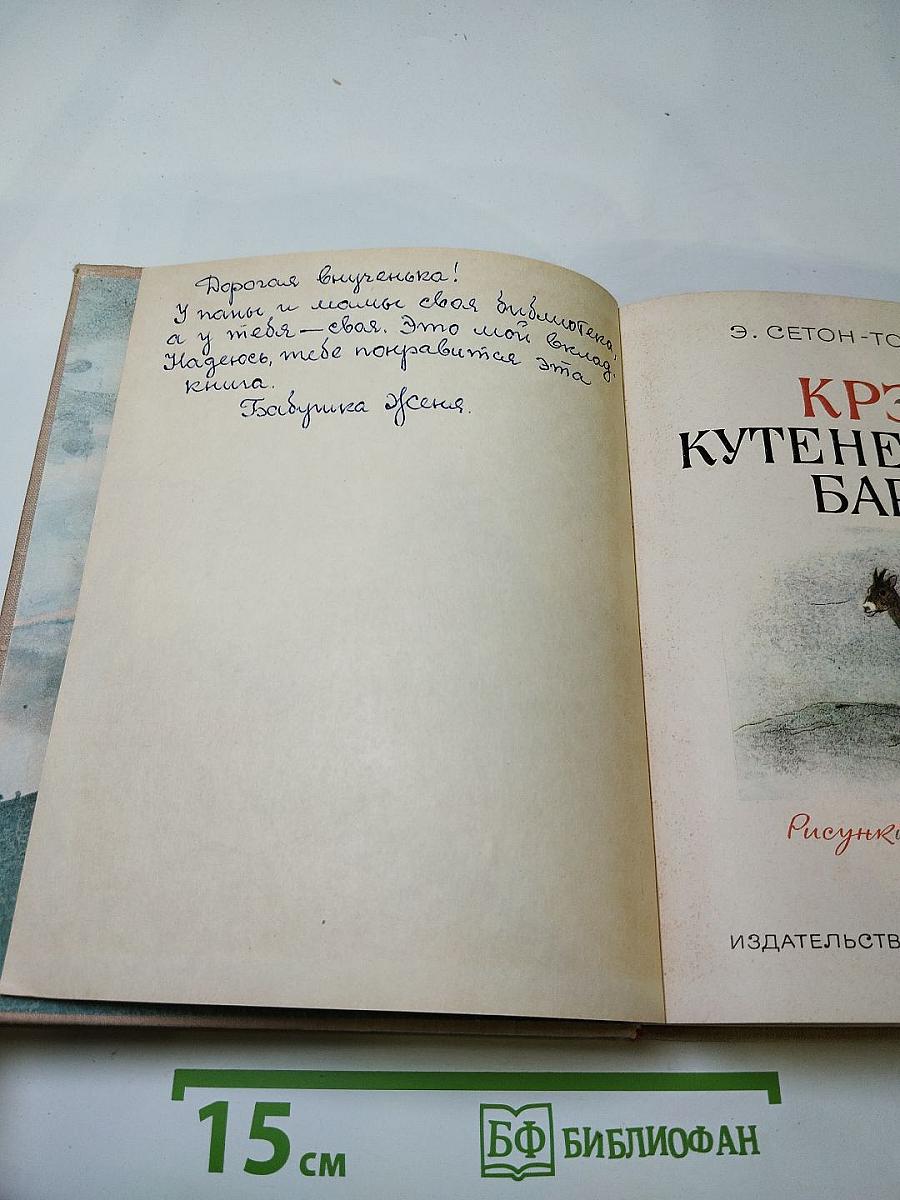 Дорогая внученька!
У папы и мамы своя библиотека,
а у тебя — своя. Это мой вклад.
Надеюсь, тебе понравится эта
книга.
Бабушка Женя.
Э. СЕТОН-ТО
КРЭ
КУТЕНЕ
БАР
Рисунки
ИЗДАТЕЛЬСТВ
15 см
БФ БИБЛИОФАН